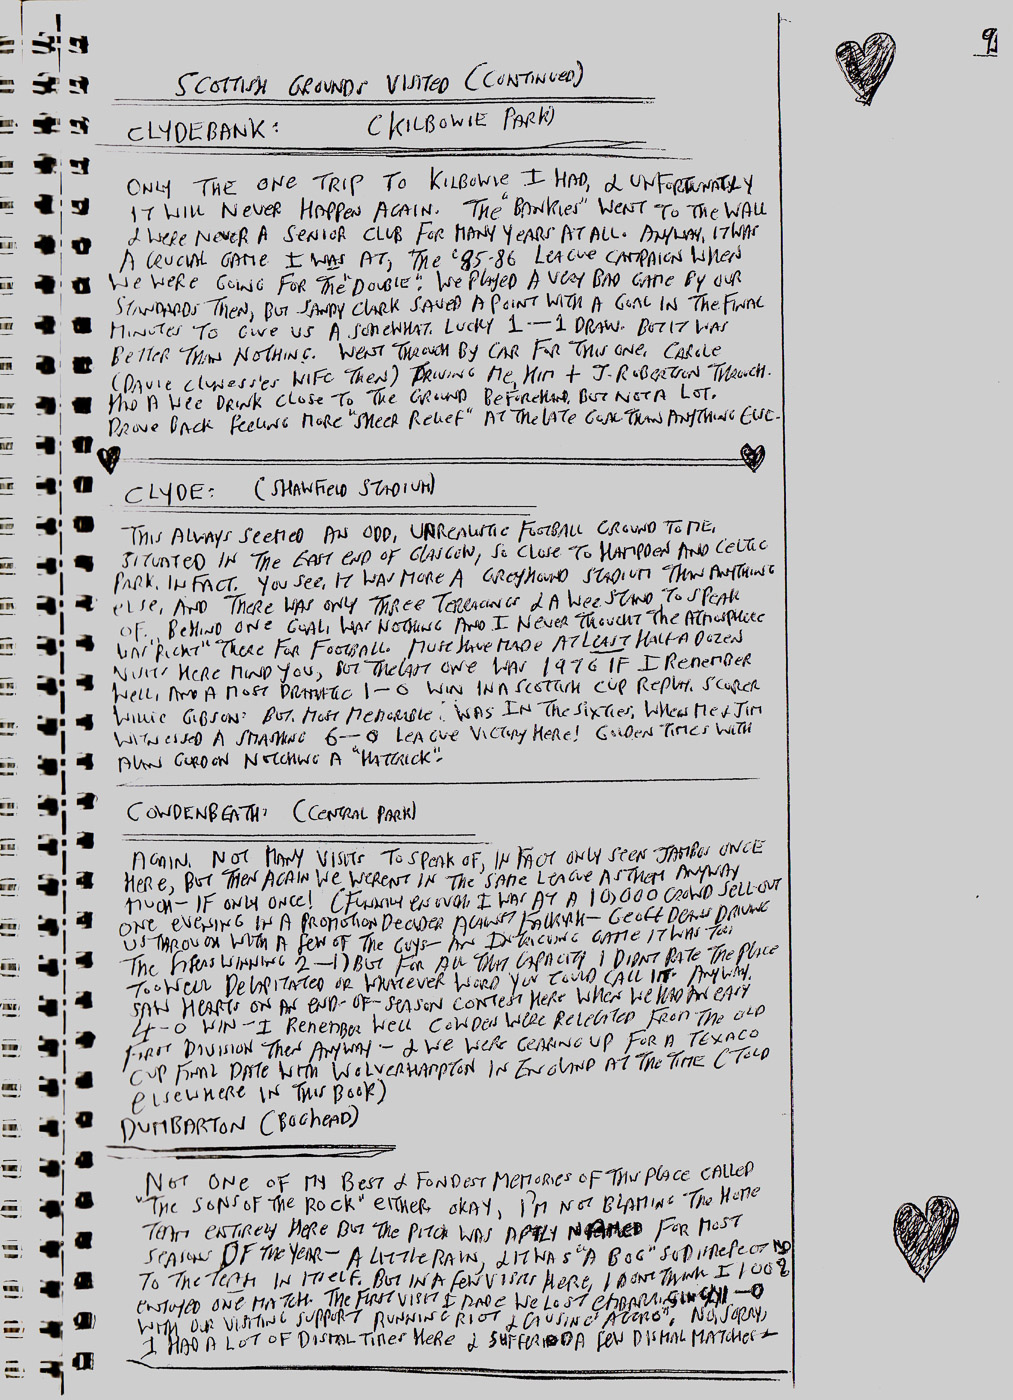 9
SCOTTISH GROUNDS VISITED (CONTINUED)
CLYDEBANK: (KILBOWIE PARK)
ONLY THE ONE TRIP TO KILBOWIE I HAD, & UNFORTUNATELY
IT WILL NEVER HAPPEN AGAIN. THE "BANKIES" WENT TO THE WALL
& WERE NEVER A SENIOR CLUB FOR MANY YEARS AT ALL. ANYWAY, IT WAS
A CRUCIAL GAME I WAS AT, THE '85-86 LEAGUE CAMPAIGN WHEN
WE WERE GOING FOR THE "DOUBLE". WE PLAYED A VERY BAD GAME BY OUR
STANDARDS THEN, BUT SANDY CLARK SAVED A POINT WITH A GOAL IN THE FINAL
MINUTES TO GIVE US A SOMEWHAT LUCKY 1-1 DRAW. BUT IT WAS
BETTER THAN NOTHING. WENT THROUGH BY CAR FOR THIS ONE, CAROLE
(DAVIE WIFE THEN) DRIVING ME, HIM + J. ROBERTSON THROUGH.
HAD A WEE DRINK CLOSE TO THE GROUND BEFOREHAND, BUT NOT A LOT.
DROVE BACK FEELING MORE "SHEER RELIEF" AT THE LATE GOAL THAN ANYTHING ELSE.
CLYDE: (SHAWFIELD STADIUM)
THIS ALWAYS SEEMED AN ODD, UNREALISTIC FOOTBALL GROUND TO ME,
SITUATED IN THE EAST END OF GLASGOW, SO CLOSE TO HAMPDEN AND CELTIC
PARK, IN FACT. YOU SEE, IT WAS MORE A GREYHOUND STADIUM THAN ANYTHING
ELSE, AND THERE WAS ONLY THREE TERRACINGS & A WEE STAND TO SPEAK
OF. BEHIND ONE GOAL, WAS NOTHING AND I NEVER THOUGHT THE ATMOSPHERE
WAS "RIGHT" THERE FOR FOOTBALL. MUST HAVE MADE AT LEAST HALF A DOZEN
VISITS HERE MIND YOU, BUT THE LAST ONE WAS 1976 IF I REMEMBER
WELL, AND A MOST DRAMATIC 1-0 WIN IN A SCOTTISH CUP REPLAY. SCORER
WILLIE GIBSON. BUT MOST MEMORABLE: WAS IN THE SIXTIES, WHEN ME & JIM
WITNESSED A SMASHING 6-0 LEAGUE VICTORY HERE! GOLDEN TIMES WITH
ALAN GORDON NOTCHING A "HATTRICK".
COWDENBEATH: (CENTRAL PARK)
AGAIN, NOT MANY VISITS TO SPEAK OF, IN FACT ONLY SEEN JAMBOS ONCE
HERE, BUT THEN AGAIN WE WERENT IN THE SAME LEAGUE AS THEM ANYWAY
MUCH - IF ONLY ONCE! (FUNNILY ENOUGH, I WAS AT A 10,000 CROWD SELL-OUT
ONE EVENING IN A PROMOTION DECIDER AGAINST FALKIRK - GEOFF DEANS DRIVING
US THROUGH WITH A FEW OF THE GUYS - AN INTRIGUING GAME IT WAS TOO
THE FIFERS WINNING 2-1) BUT FOR ALL THAT CAPACITY I DIDNT RATE THE PLACE
TOO WELL DELAPITATED OR WHATEVER WORD YOU COULD CALL IT. ANYWAY,
SAW HEARTS ON AN END-OF-SEASON CONTEST HERE WHEN WE HAD AN EASY
4-0 WIN - I REMEMBER WELL COWDEN WERE RELEGATED FROM THE OLD
FIRST DIVISION THEN ANYWAY - & WE WERE GEARING UP FOR A TEXACO
CUP FINAL DATE WITH WOLVERHAMPTON IN ENGLAND AT THE TIME (TOLD
ELSEWHERE IN THIS BOOK)
DUMBARTON (BOGHEAD)
NOT ONE OF MY BEST & FONDEST MEMORIES OF THIS PLACE CALLED
"THE SONS OF THE ROCK" EITHER. OKAY, I'M NOT BLAMING THE HOME
TEAM ENTIRELY HERE BUT THE PITCH WAS APTLY NAMED FOR MOST
SEASONS OF THE YEAR - A LITTLE RAIN, & IT WAS "A BOG" SO DISRESPECT NO
TO THE TEAM IN ITSELF. BUT IN A FEW VISITS HERE, I DONT THINK I 100%
ENJOYED ONE MATCH. THE FIRST VISIT I MADE WE LOST 1-0
WITH OUR VISITING SUPPORT RUNNING RIOT & CAUSING AGGRO". NO, SORRY,
I HAD A LOT OF DISMAL TIMES HERE & SUFFERED A FEW DISMAL MATCHES